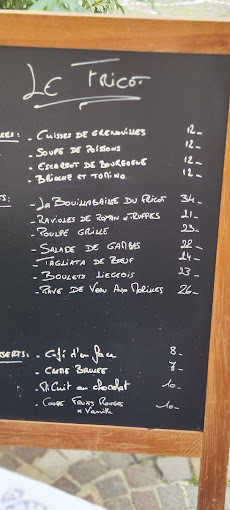 LE FRICOT
RES: - CUISSES DE GRENOUILLES 12-
- SOUPE DE POISSONS 12-
- ESCARGOT DE BOURGOGNE 12-
- BRIOCHE ET TOMINO 12-
TS: - LA BOUILLABAISSE DU FRICOT 34-
- RAVIOLES DE ROMAN & TRUFFES 21-
- POULPE GRILLÉ 23-
- SALADE DE GAMBAS 22-
- TAGLIATA DE BOEUF 24-
- BOULETS LIEGEOIS 23-
- PAVÉ DE VEAU AUX MORILLES 26-
SSERTS: - Café d'en face 8-
- CREME BRULEE 7-
- Mi Cuit au chocolat 10-
- COUPE FRUITS ROUGES & Vanille 10-